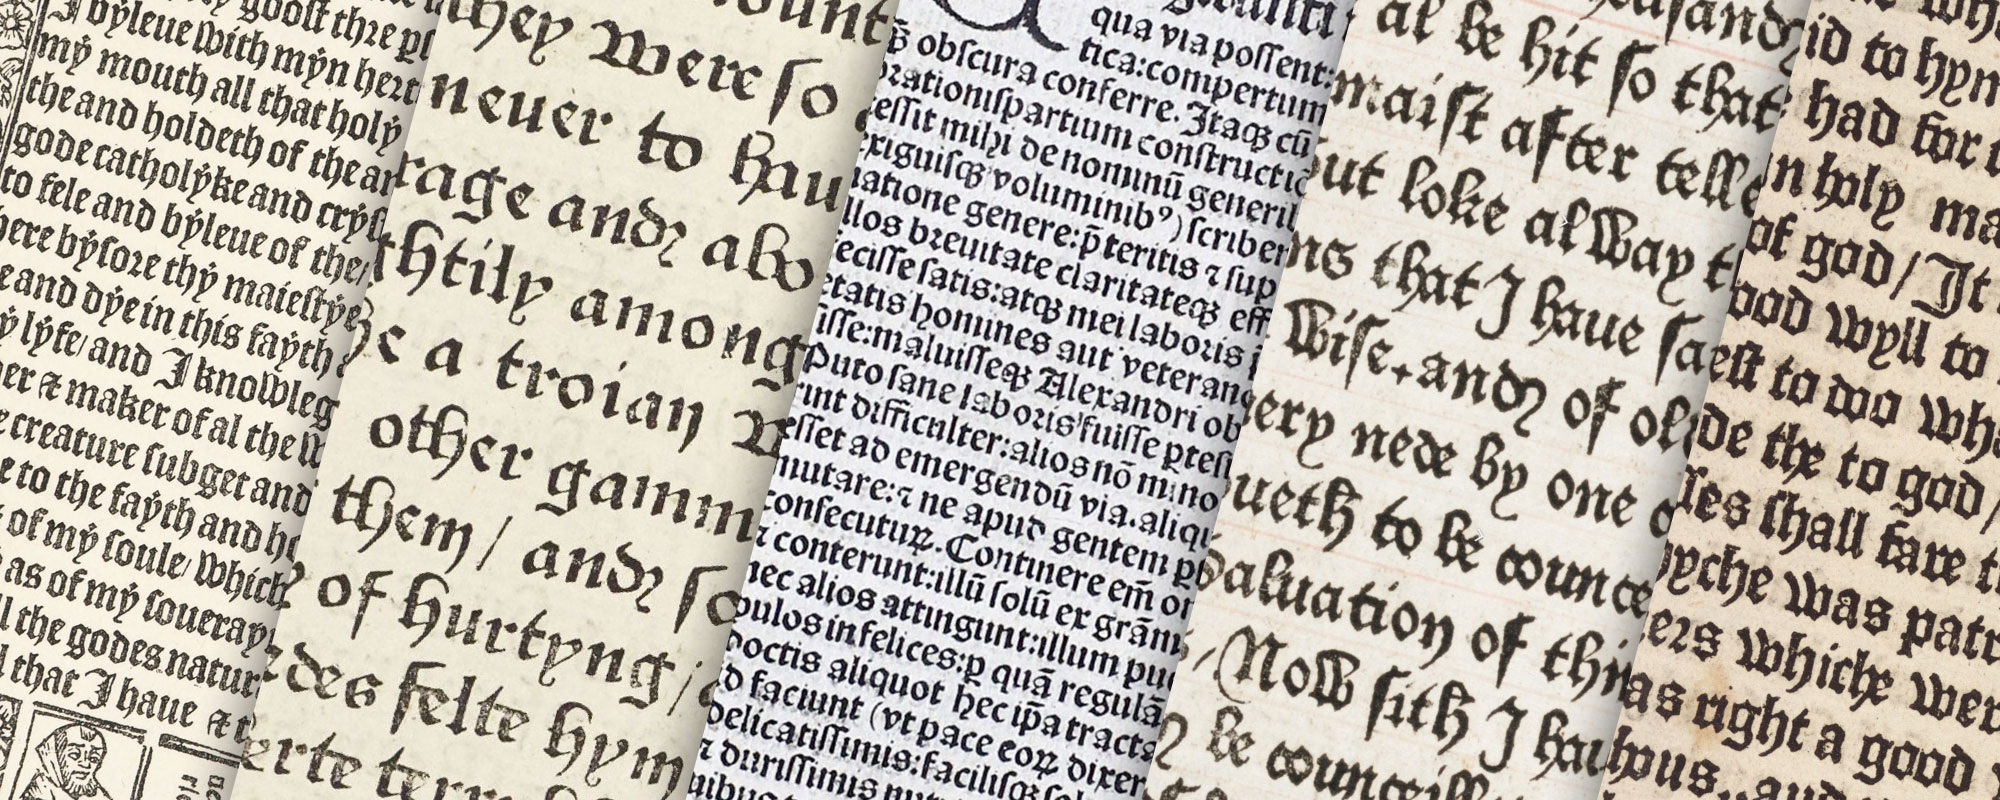 goost thre
I byleue with myn hert
my mouth all that holy
the and holdeth of the
gode catholyke and
to fele and byleue of the
byfore thy maiestye
e and dye in this fayth
y lyfe/and I knowleg
er & maker of al the
creature subget and
e to the fayth and
of my soule/which
as of my souerayn
l the godes natur
l that I haue &
they were so
neuer to hau
rage and abo
htily among
e a troian
other gamm
them / and so
of hurtyng /
des felte hym
erte
qua via possent:
tica:compertum
obscura conferre. Itaqꝫ cū
orationispartium constructio
essit mihi de nominū generi
exiguisqꝫ voluminibꝰ) scriber
genere:p̄teritis ⁊ sup
llos breuitate claritateqꝫ eff
ecisse satis:atqꝫ mei laboris
etatis homines aut veteran
isse:maluisseqꝫ Alexandri ob
puto sane laboris fuisse
rint difficulter:alios nō mino
esset ad emergendū via.aliqu
mutare:⁊ ne apud gentem
consecutuꝝ. Continere em̄
⁊ conterunt:illū solū ex grām
nec alios attingunt:illum pu
pulos infelices:ꝑ quā regulā
doctis aliquot hec ip̄a tracta
faciunt (vt pace eoꝝ dixer
delicatissimis:facilisqꝫ
⁊ durissimis
al be hit so that
maist after telle
ut loke alway
ns that I haue sa
wise.and of ol
ery nede by one
ueth to be counce
saluation of thi
Now sith I hau
be
id to hym
had for
n holy ma
of god/It
ood wyll to
est to do wh
de the to god/
ses shall fare
yche was patr
ers whiche wer
as right a good